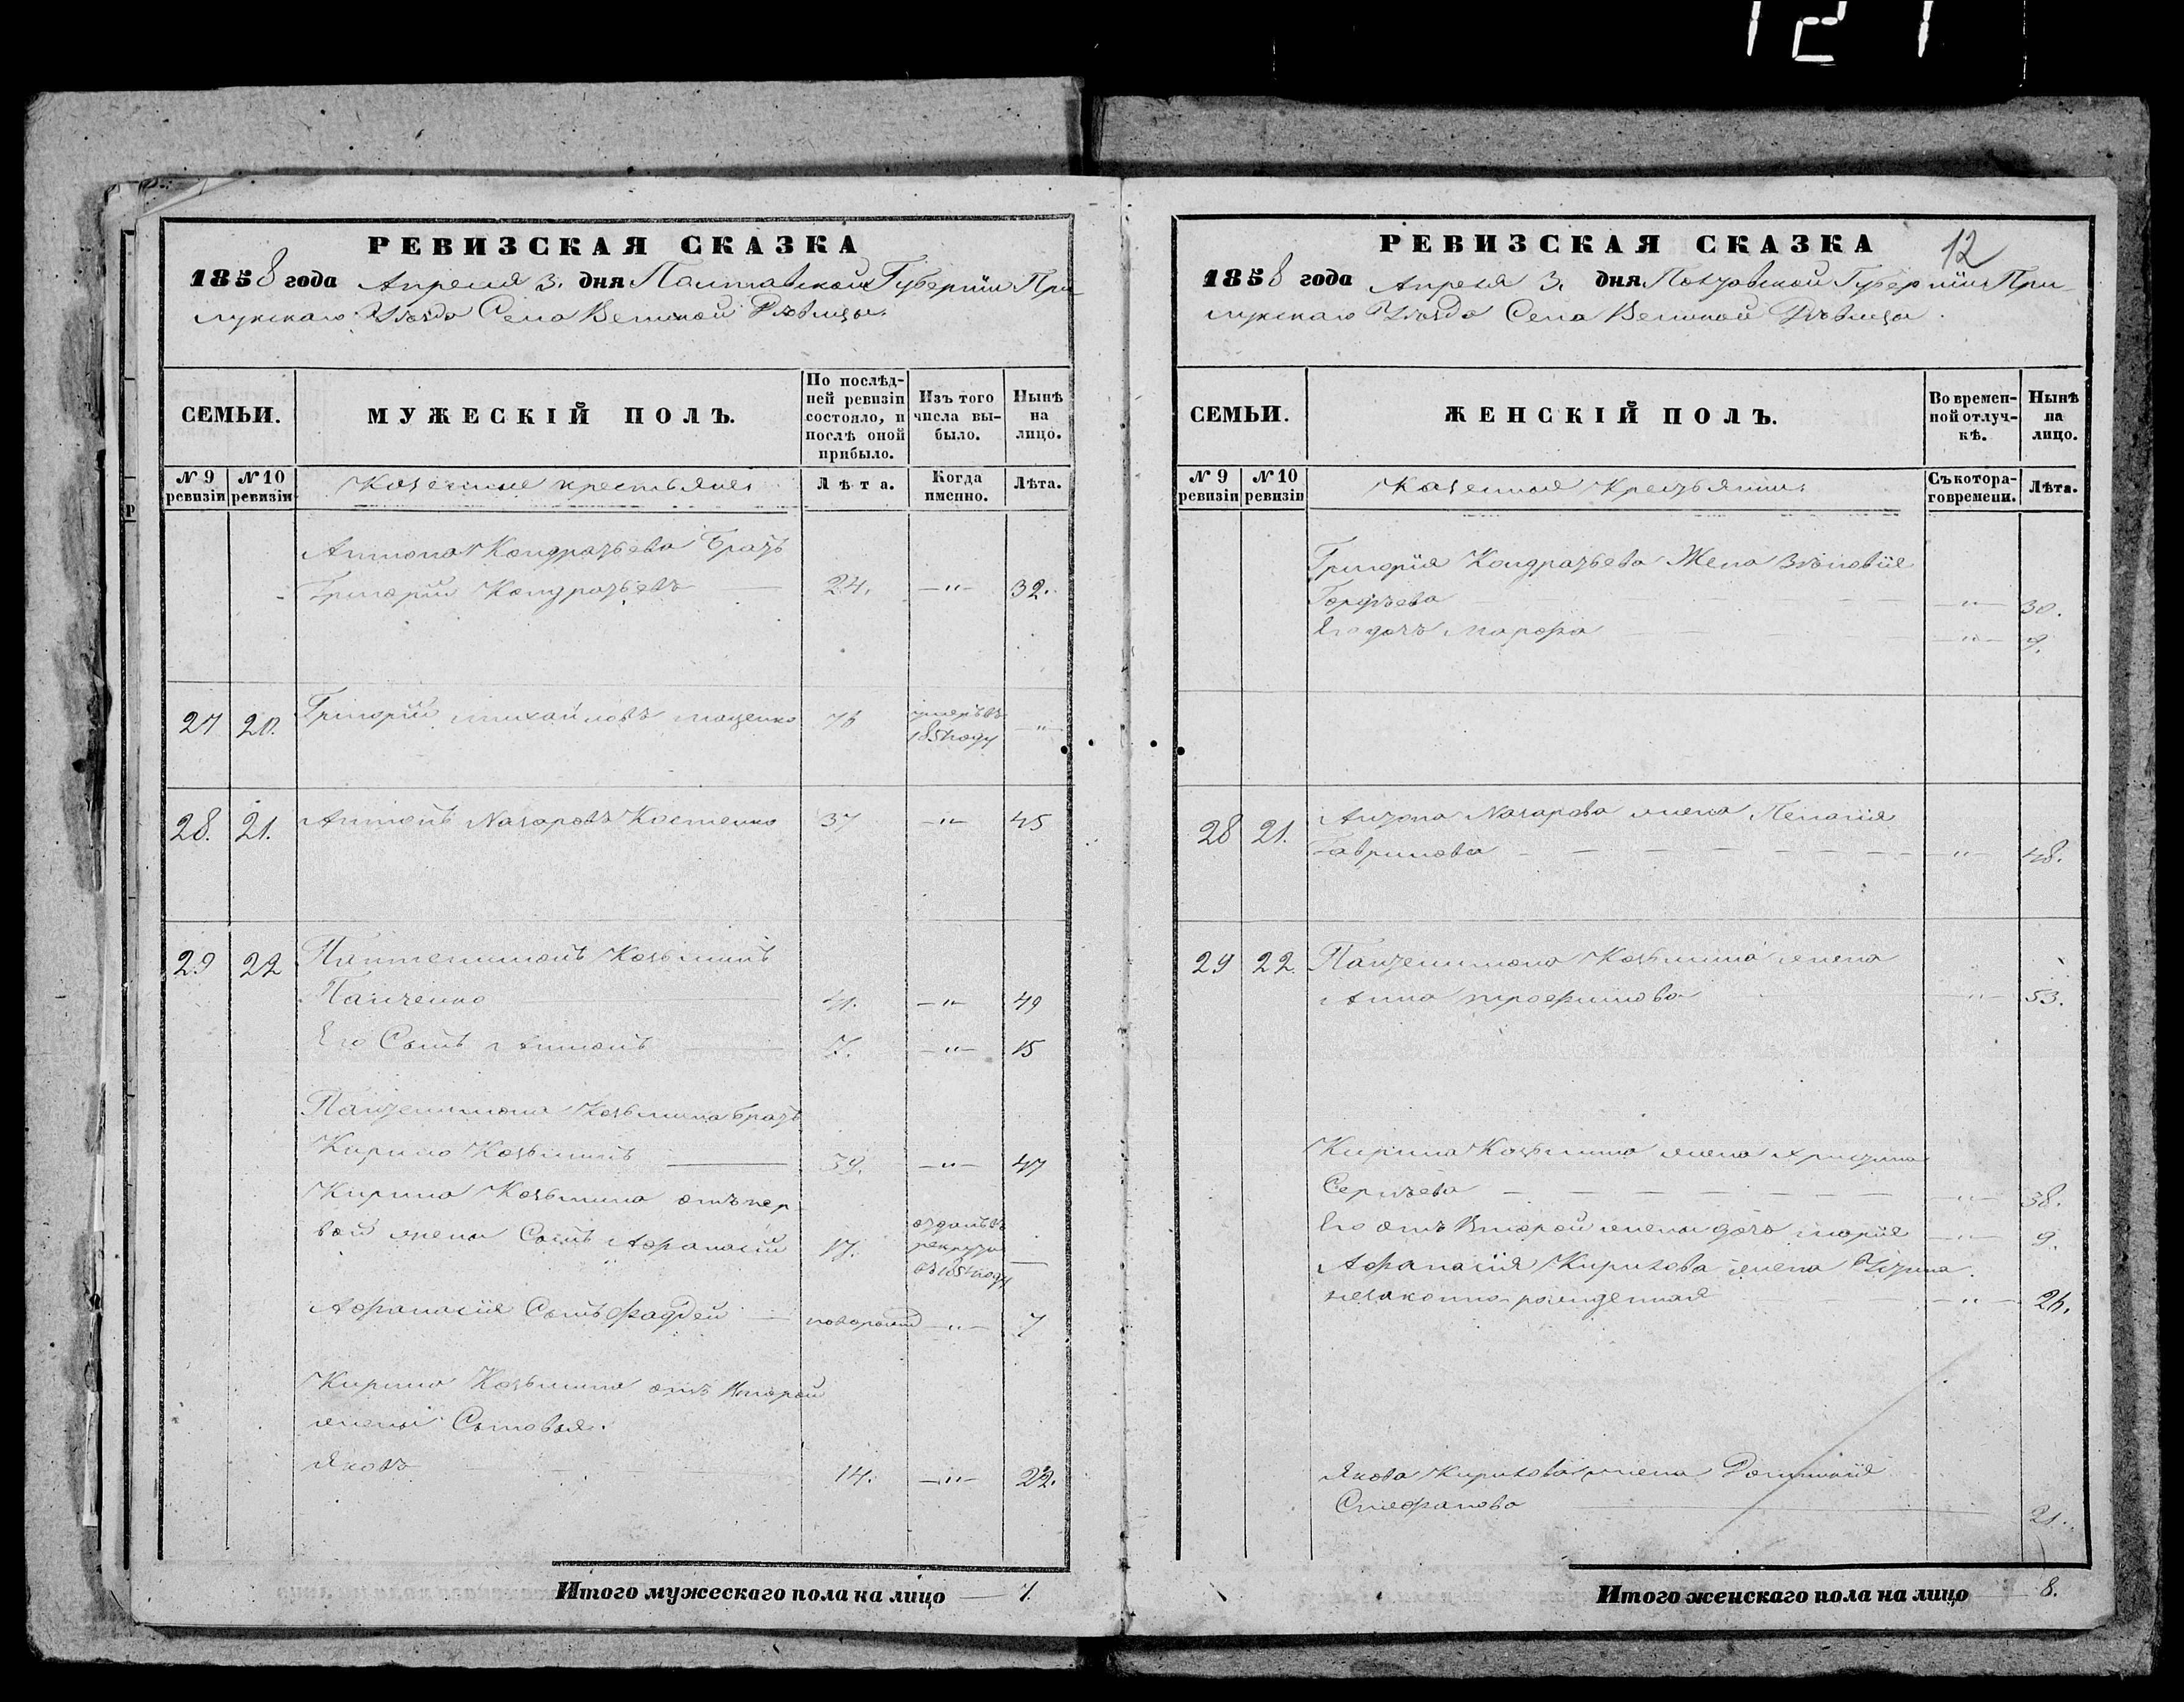 121
РЕВИЗСКАЯ СКАЗКА
1858 года Апреля 3. дня Полтавской Губерніи При
лукскаго Уѣзда Села Великой Дѣвицы
СЕМЬИ.
МУЖЕСКІЙ ПОЛЪ.
По послѣд-
ней ревизіи
состояло, и
послѣ оной
прибыло.
Изъ того
числа вы-
было.
Нынѣ
на
лицо.
№ 9
ревизіи
№ 10
ревизіи
Казенные крестьяне
Лѣта.
Когда
именно.
Лѣта.
Антона Кондратьева Братъ
Григорій Кондратьевъ 24. —"— 32.
27 20. Григорій Михайловъ 76 умеръ въ
185 году —"—
28. 21. Антонъ Назаровъ Костенко 37 —"— 45
29 22 Пантелимонъ Козьминъ
Панченко 41. —"— 49
Его Сынъ Антонъ 7. —"— 15
Пантелимона Козьмина братъ
Кирило Козьминъ 39. —"— 47
Кирила Козьмина отъ пер
вой жены Сынъ Афанасій 17. отданъ въ
рекруты
въ году —
Афанасія Сынъ Фадей —"— 7
Кирила Козьмина отъ Второй
жены Сыновья.
Яковъ 14. —"— 22.
Итого мужескаго пола на лицо — 7.
РЕВИЗСКАЯ СКАЗКА 12
1858 года Апреля 3. дня Полтавской Губерніи При
лукскаго Уѣзда Села Великой Дѣвицы
СЕМЬИ.
ЖЕНСКІЙ ПОЛЪ.
Во времен-
ной отлуч-
кѣ.
Нынѣ
на
лицо.
№ 9
ревизіи
№ 10
ревизіи
Казенные Крестьяни
Съ котора-
го времени.
Лѣта.
Григорія Кондратьева Жена Зѣновія
Гордѣева —"— 30.
Его дочь Марфа —"— 9.
28 21. Антона Назарова жена Пелагія
Гаврилова —"— 48.
29 22. Пантелимона Козьмина жена
Анна Трофимова —"— 53.
Кирила Козьмина жена Христина
Сергѣева —"— 38.
Его отъ Второй жены дочь Марія —"— 9.
Афанасія Кирилова жена
незаконно-рожденная —"— 26.
Якова Кирилова жена Домникія
Стефанова 21.
Итого женскаго пола на лицо 8.